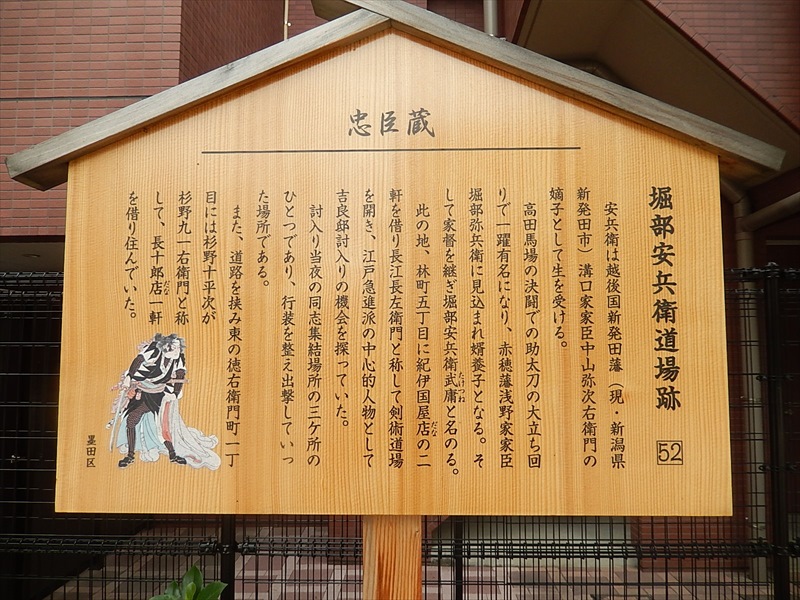 忠臣蔵
堀部安兵衛道場跡
52
安兵衛は越後国新発田藩（現・新潟県
新発田市）溝口家家臣中山弥次右衛門の
嫡子として生を受ける。
高田馬場の決闘での助太刀の大立ち回
りで一躍有名になり、赤穂藩浅野家家臣
堀部弥兵衛に見込まれ婿養子となる。そ
して家督を継ぎ堀部安兵衛武庸と名のる。
たけつね
此の地、林町五丁目に紀伊国屋店の二
だな
軒を借り長江長左衛門と称して剣術道場
を開き、江戸急進派の中心的人物として
吉良邸討入りの機会を探っていた。
討入り当夜の同志集結場所の三ケ所の
ひとつであり、行装を整え出撃していっ
た場所である。
また、道路を挟み東の徳右衛門町一丁
目には杉野十平次が
杉野九一右衛門と称
して、長十郎店一軒
だな
を借り住んでいた。
墨田区